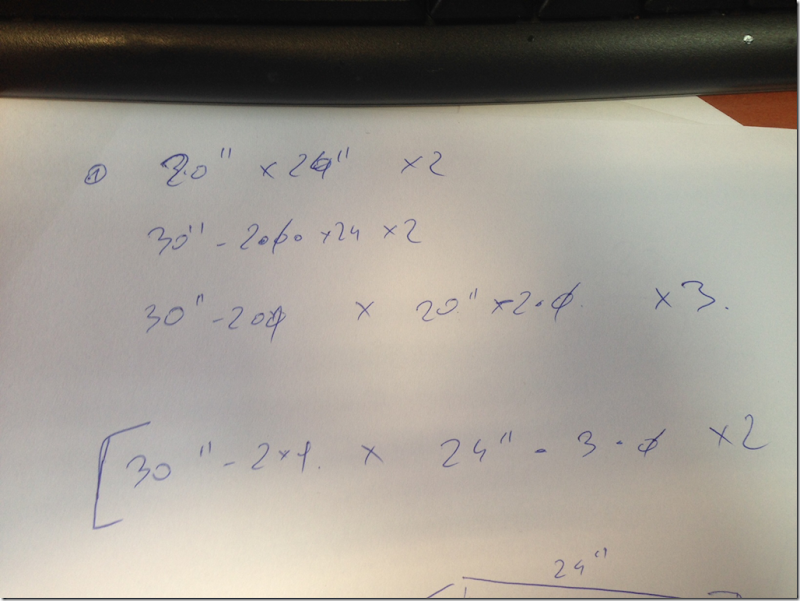 ① 20" x 24" x2
30" - 2•ϕ• x24 x2
30" - 2•ϕ x 20" x2•ϕ. x3.
[30" - 2x1. x 24" - 3•ϕ x2
24"